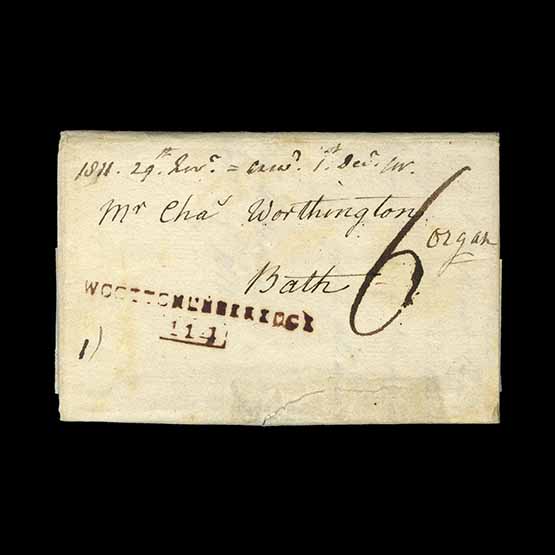 1811. 29th Novr. = answd. 1st Decr. 1811.
Mr Chas Worthington
Organ
Bath
6
WOOTTONUNDEREDGE
114
1)